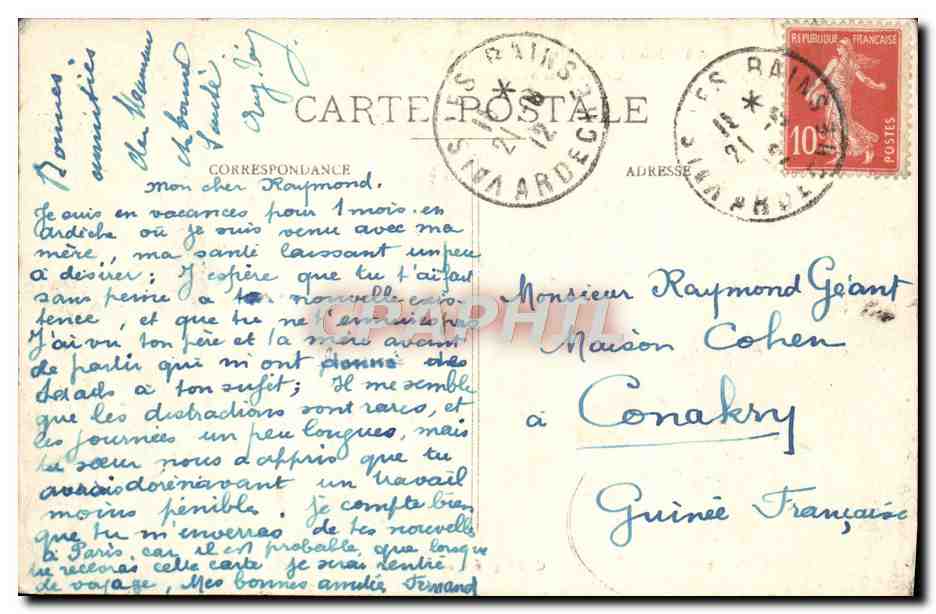 Bonnes
amitiés
de Maman
et bonne
santé
CARTE POSTALE
CORRESPONDANCE
ADRESSE
VALS LES BAINS
ARDECHE
VALS LES BAINS
ARDECHE
REPUBLIQUE FRANÇAISE
10c
POSTES
Mon cher Raymond.
Je suis en vacances pour 1 mois en
Ardèche où je suis venu avec ma
mère, ma santé laissant un peu
à désirer; J'espère que tu t'es fait
sans peine à ta nouvelle exis-
tence, et que tu ne t'ennuies pas
J'ai vu ton père et ta mère avant
de partir qui m'ont donné des
détails à ton sujet; Il me semble
que les distractions sont rares, et
les journées un peu longues, mais
ta sœur nous a appris que tu
aurais dorénavant un travail
moins pénible. Je compte bien
que tu m'enverras de tes nouvelles
à Paris, car il est probable que lorsque
tu recevras cette carte je serai rentré
de voyage, Mes bonnes amitiés Fernand
Monsieur Raymond Géant
Maison Cohen
à Conakry
Guinée Française
CPAPHIL